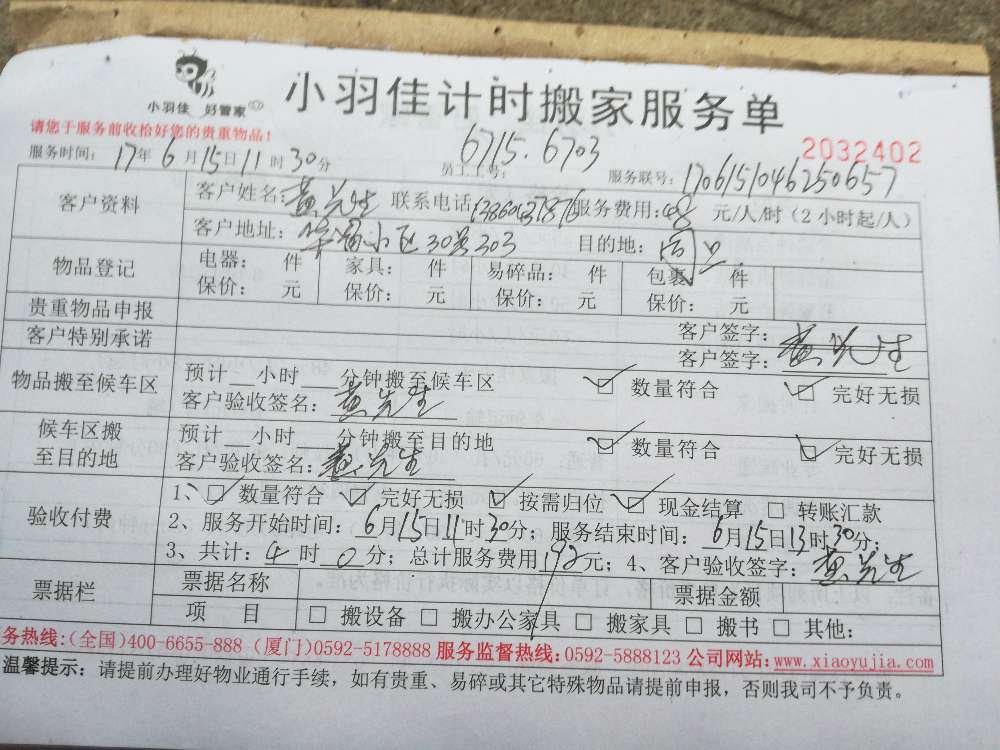 小羽佳 好管家
小羽佳计时搬家服务单
请您于服务前收拾好您的贵重物品!
2032402
服务时间: 17年6月15日11时30分 员工工号: 6715.6703 服务联号: 1706151046250657
客户资料 客户姓名: 黄先生 联系电话: 服务费用: 48 元/人/时(2小时起/人)
客户地址: 华富小区30号303 目的地: 同上
物品登记 电器: 件 家具: 件 易碎品: 件 包裹: 件
保价: 元 保价: 元 保价: 元 保价: 元
贵重物品申报 客户签字: 黄先生
客户特别承诺 客户签字:
物品搬至候车区 预计__小时___分钟搬至候车区 ☑ 数量符合 ☑ 完好无损
客户验收签名: 黄先生
候车区搬至目的地 预计__小时___分钟搬至目的地 ☑ 数量符合 ☑ 完好无损
客户验收签名: 黄先生
验收付费 1、☑ 数量符合 ☑ 完好无损 ☑ 按需归位 ☑ 现金结算 □ 转账汇款
2、服务开始时间: 6月15日11时30分; 服务结束时间: 6月15日13时30分;
3、共计: 4时0分; 总计服务费用192元; 4、客户验收签字: 黄先生
票据栏 票据名称 票据金额
项 目 □ 搬设备 □ 搬办公家具 □ 搬家具 □ 搬书 □ 其他:
务热线:(全国)400-6655-888 (厦门)0592-5178888 服务监督热线:0592-5888123 公司网站:www.xiaoyujia.com
温馨提示: 请提前办理好物业通行手续, 如有贵重、易碎或其它特殊物品请提前申报, 否则我司不予负责。